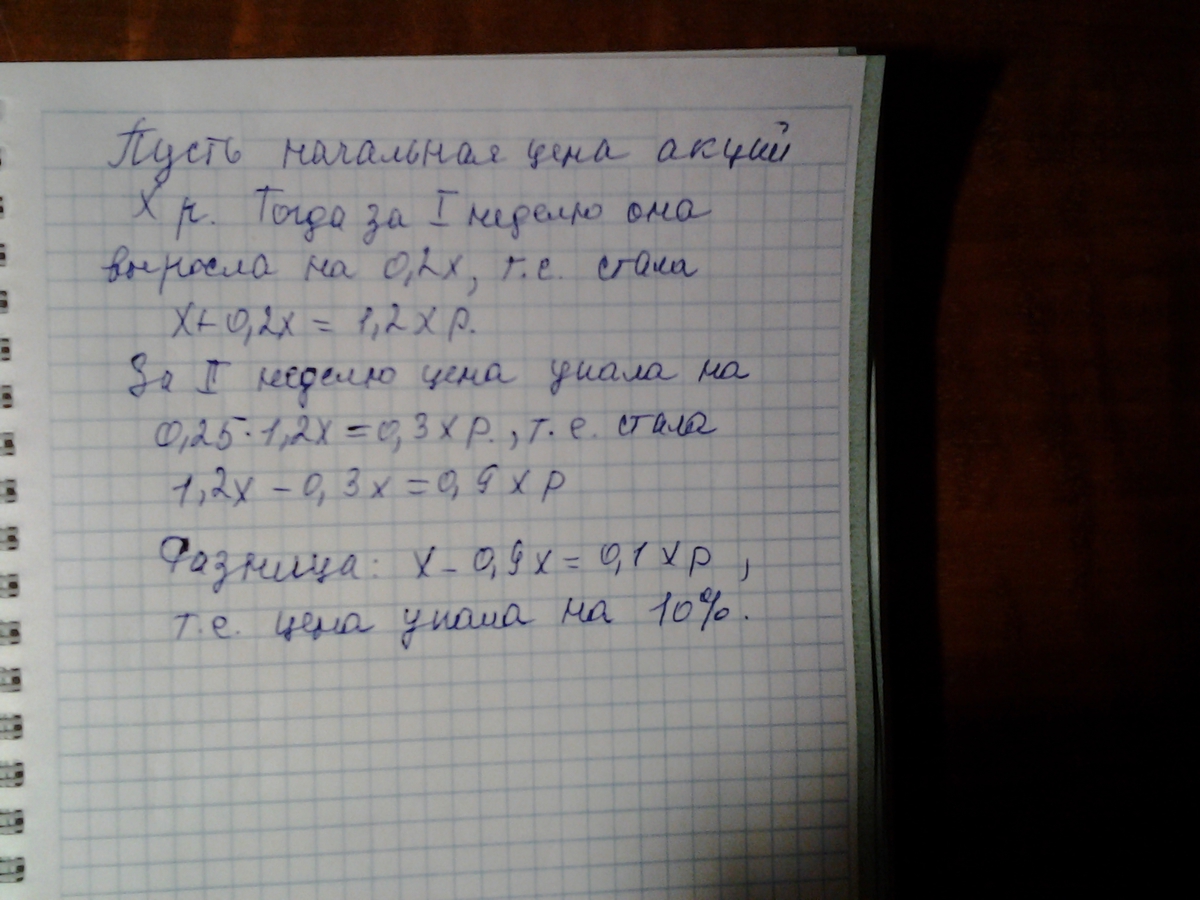 Пусть начальная цена акций
X р. Тогда за I неделю она
выросла на 0,2x, т.е. стала
x+0,2x = 1,2x р.
За II неделю цена упала на
0,25·1,2x=0,3x р., т.е. стала
1,2x-0,3x=0,9x р
Разница: x-0,9x=0,1x р,
т.е. цена упала на 10%.